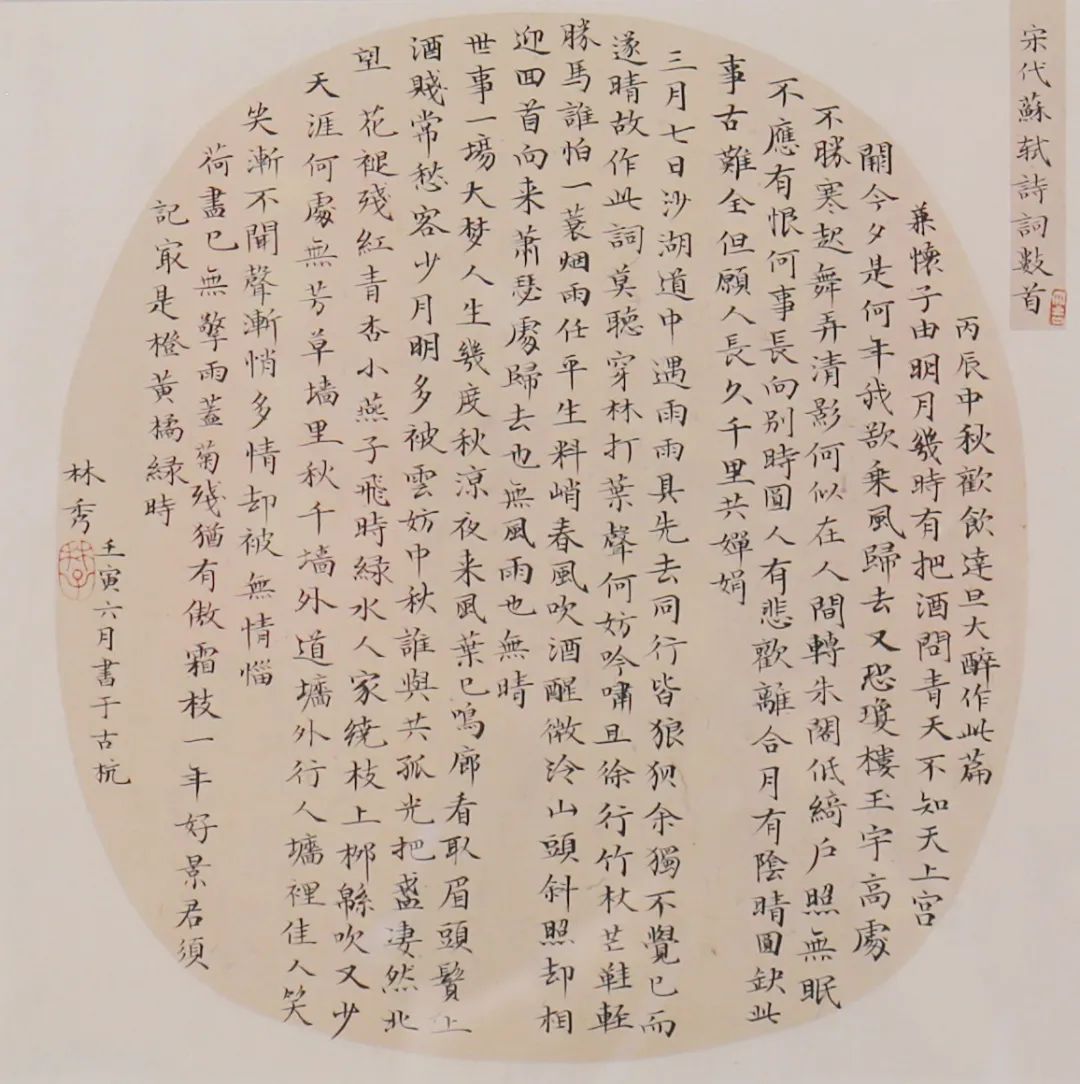 宋代蘇轼詩詞数首
丙辰中秋歡飲達旦大醉作此篇
兼懷子由明月幾時有把酒問青天不知天上宮
闕今夕是何年我欲乘風歸去又恐瓊樓玉宇高處
不勝寒起舞弄清影何似在人間轉朱閣低綺户照無眠
不應有恨何事長向別時圓人有悲歡離合月有陰晴圓缺此
事古難全但願人長久千里共嬋娟
三月七日沙湖道中遇雨雨具先去同行皆狼狽余獨不覺已而
遂晴故作此詞莫聽穿林打葉聲何妨吟嘯且徐行竹杖芒鞋輕
勝馬誰怕一蓑烟雨任平生料峭春風吹酒醒微冷山頭斜照却相
迎回首向来蕭瑟處歸去也無風雨也無晴
世事一場大梦人生幾度秋涼夜来風葉已鳴廊看取眉頭鬢上
酒賤常愁客少月明多被雲妨中秋誰與共孤光把盞凄然北
望 花褪殘紅青杏小燕子飛時緑水人家繞枝上柳緜吹又少
天涯何處無芳草墙里秋千墙外道墻外行人墻裡佳人笑
笑漸不聞聲漸悄多情却被無情惱
荷盡已無擎雨蓋菊殘猶有傲霜枝一年好景君須
記最是橙黃橘緑時
林秀
壬寅六月書于古杭